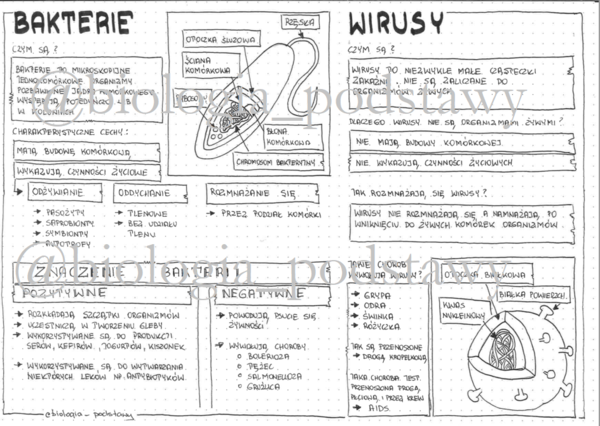 BAKTERIE
CZYM SĄ?
BAKTERIE TO MIKROSKOPIJNE
JEDNOKOMÓRKOWE ORGANIZMY
POZBAWIONE JĄDRA KOMÓRKOWEGO
WYSTĘPUJĄ POJEDYNCZO LUB
W KOLONIACH
CHARAKTERYSTYCZNE CECHY:
MAJĄ BUDOWĘ KOMÓRKOWĄ
WYKAZUJĄ CZYNNOŚCI ŻYCIOWE
RZĘSKA
OTOCZKA ŚLUZOWA
ŚCIANA
KOMÓRKOWA
BŁONA
KOMÓRKOWA
CHROMOSOM BAKTERYJNY
ODŻYWIANIE
→ PASOŻYTY
→ SAPROBIONTY
→ SYMBIONTY
→ AUTOTROFY
ODDYCHANIE
→ TLENOWE
→ BEZ UDZIAŁU
TLENU
ROZMNAŻANIE SIĘ
→ PRZEZ PODZIAŁ KOMÓRKI
ZNACZENIE BAKTERII
POZYTYWNE
→ ROZKŁADAJĄ SZCZĄTKI ORGANIZMÓW
→ UCZESTNICZĄ W TWORZENIU GLEBY.
→ WYKORZYSTYWANE SĄ DO PRODUKCJI
SERÓW, KEFIRÓW, JOGURTÓW, KISZONEK.
→ WYKORZYSTYWANE SĄ DO WYTWARZANIA
NIEKTÓRYCH LEKÓW NP. ANTYBIOTYKÓW.
NEGATYWNE
→ POWODUJĄ PSUCIE SIĘ
ŻYWNOŚCI.
→ WYWOŁUJĄ CHOROBY
BOLERIOZA
TĘŻEC
SALMONELLOZA
GRUŹLICA
@biologia_podstawy
WIRUSY
CZYM SĄ?
WIRUSY TO NIEZWYKLE MAŁE CZĄSTECZKI
ZAKAŹNE, NIE SĄ ZALICZANE DO
ORGANIZMÓW ŻYWYCH
DLACZEGO WIRUSY NIE SĄ ORGANIZMAMI ŻYWYMI?
NIE MAJĄ BUDOWY KOMÓRKOWEJ
NIE WYKAZUJĄ CZYNNOŚCI ŻYCIOWYCH
JAK ROZMNAŻAJĄ SIĘ WIRUSY?
WIRUSY NIE ROZMNAŻAJĄ SIĘ A NAMNAŻAJĄ PO
WNIKNIĘCIU DO ŻYWYCH KOMÓREK ORGANIZMÓW
JAKIE CHOROBY
WYWOŁUJĄ WIRUSY?
→ GRYPA
→ ODRA
→ ŚWINKA
→ RÓŻYCZKA
JAK SĄ PRZENOSZONE
→ DROGĄ KROPELKOWĄ
JAKA CHOROBA JEST
PRZENOSZONA DROGĄ
PŁCIOWĄ I PRZEZ KREW
→ AIDS.
OTOCZKA BIAŁKOWA
BIAŁKA POWIERZCH.
KWAS
NUKLEINOWY
@biologia_podstawy
@biologia_podstawy